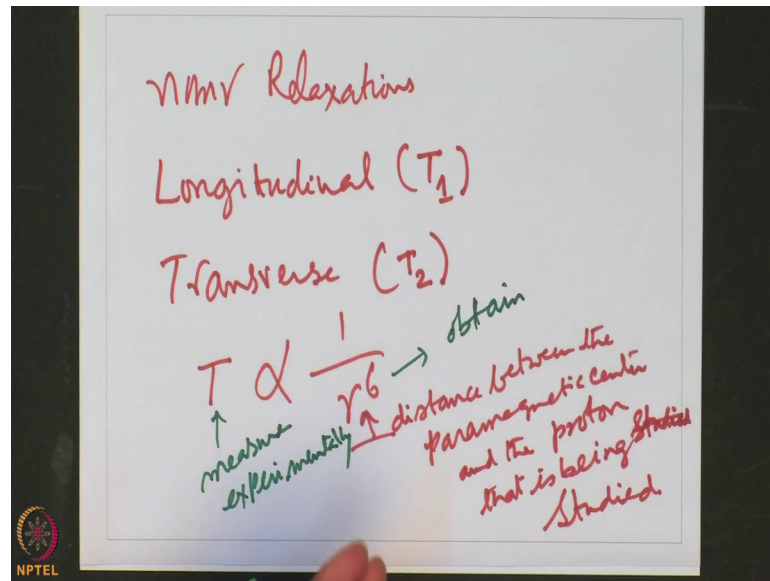 nmr Relaxations
Longitudinal (T1)
Transverse (T2)
T ∝ 1/r6 → obtain
measure
experimentally
distance between the
paramagnetic center
and the proton
that is being studied
studied.
NPTEL